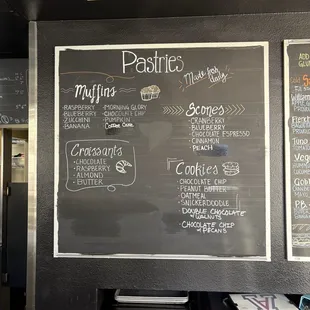 Pastries
Made fresh daily
Muffins
-RASPBERRY
-BLUEBERRY
-ZUCCHINI
-BANANA
-MORNING GLORY
-CHOCOLATE CHIP
-PUMPKIN
Coffee Cake
Croissants
- CHOCOLATE
- RASPBERRY
- ALMOND
- BUTTER
Scones
- CRANBERRY
- BLUEBERRY
- CHOCOLATE ESPRESSO
- CINNAMON
PEACH
Cookies
- CHOCOLATE CHIP
- PEANUT BUTTER
- OATMEAL
- SNICKERDOODLE
- DOUBLE CHOCOLATE
W WALNUTS
- CHOCOLATE CHIP
W PECANS
ADD
Tuna
PB